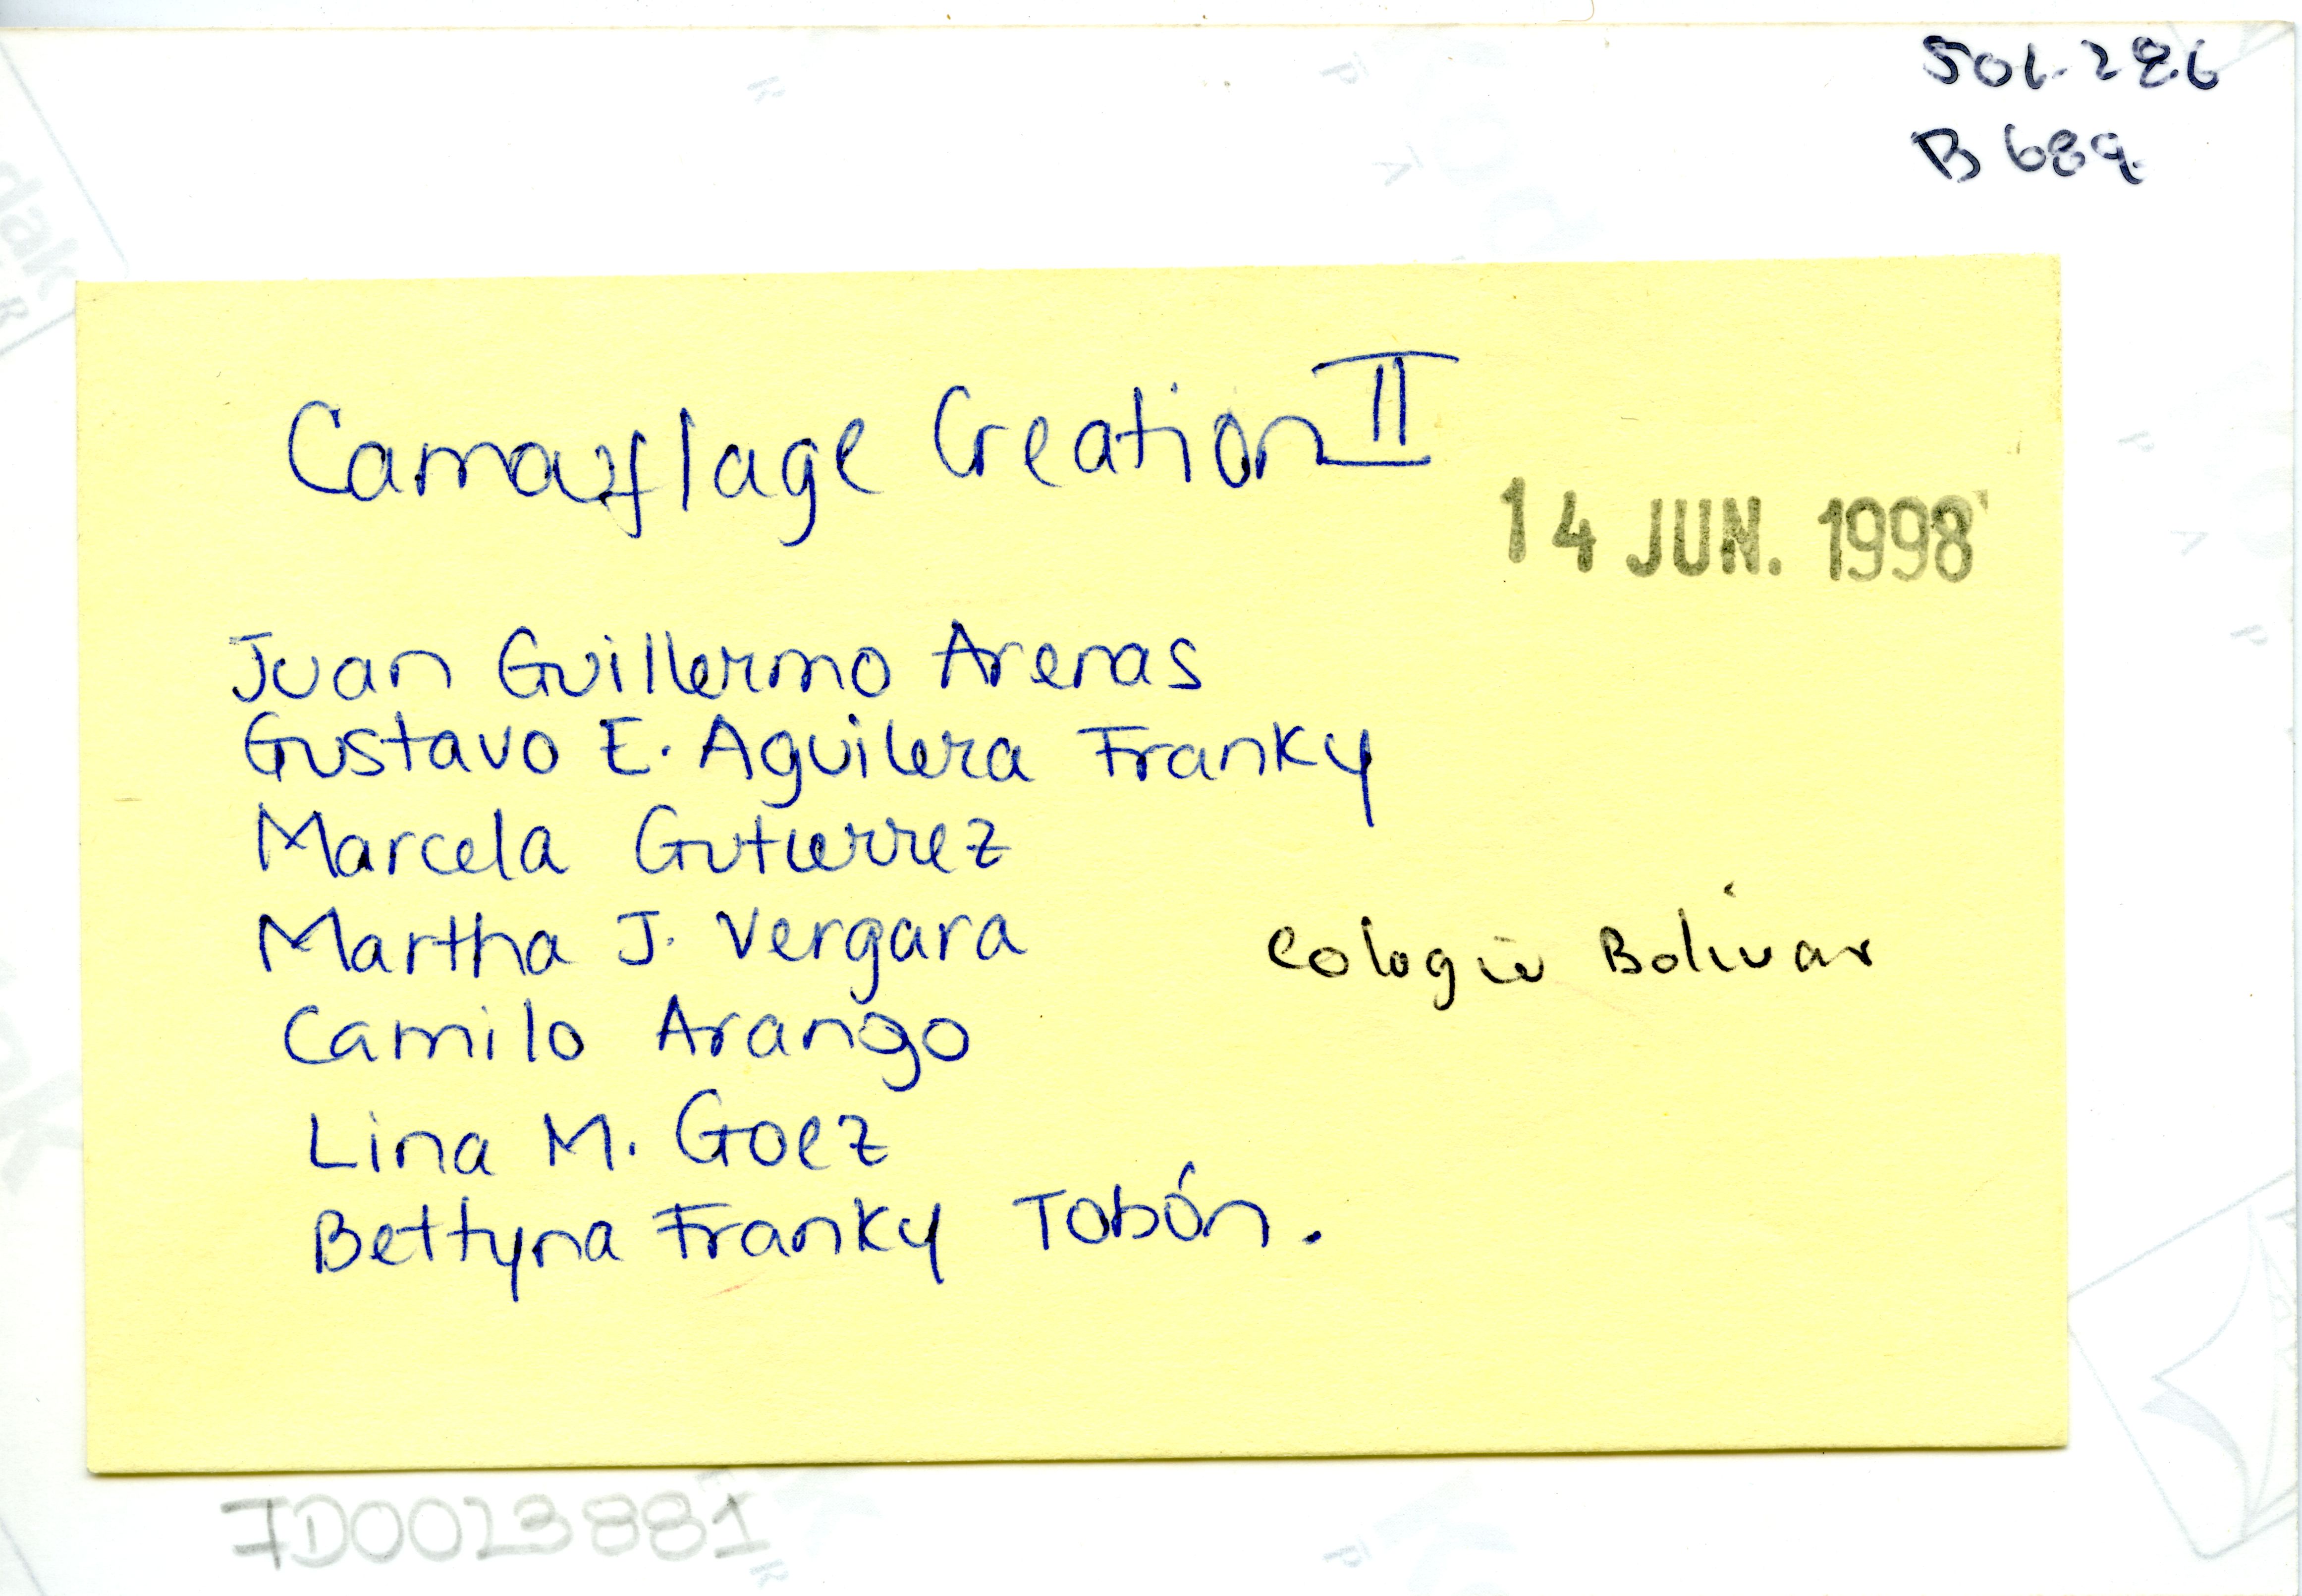 501.286
B689
Camouflage Creation II
14 JUN. 1998
Juan Guillermo Arenas
Gustavo E. Aguilera Franky
Marcela Gutierrez
Martha J. Vergara
Colegio Bolivar
Camilo Arango
Lina M. Goez
Bettyna Franky Tobón.
7D0023881